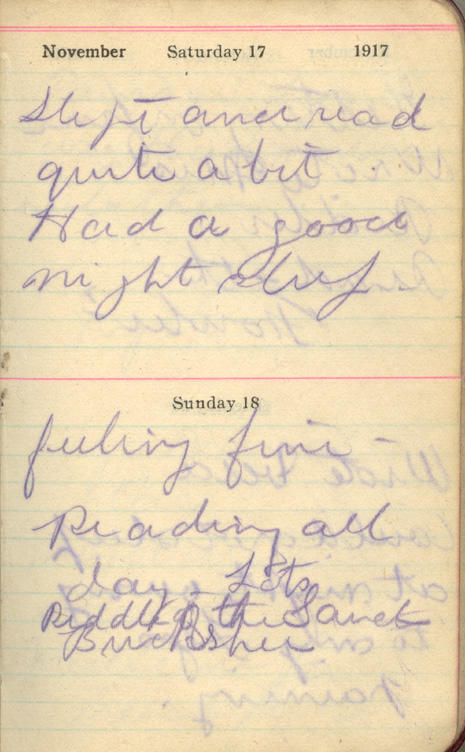 November Saturday 17 1917
Slept and read
quite a bit.
Had a good
night sleep
Sunday 18
feeling fine
Reading all
day. Lots
Riddle of the Sands